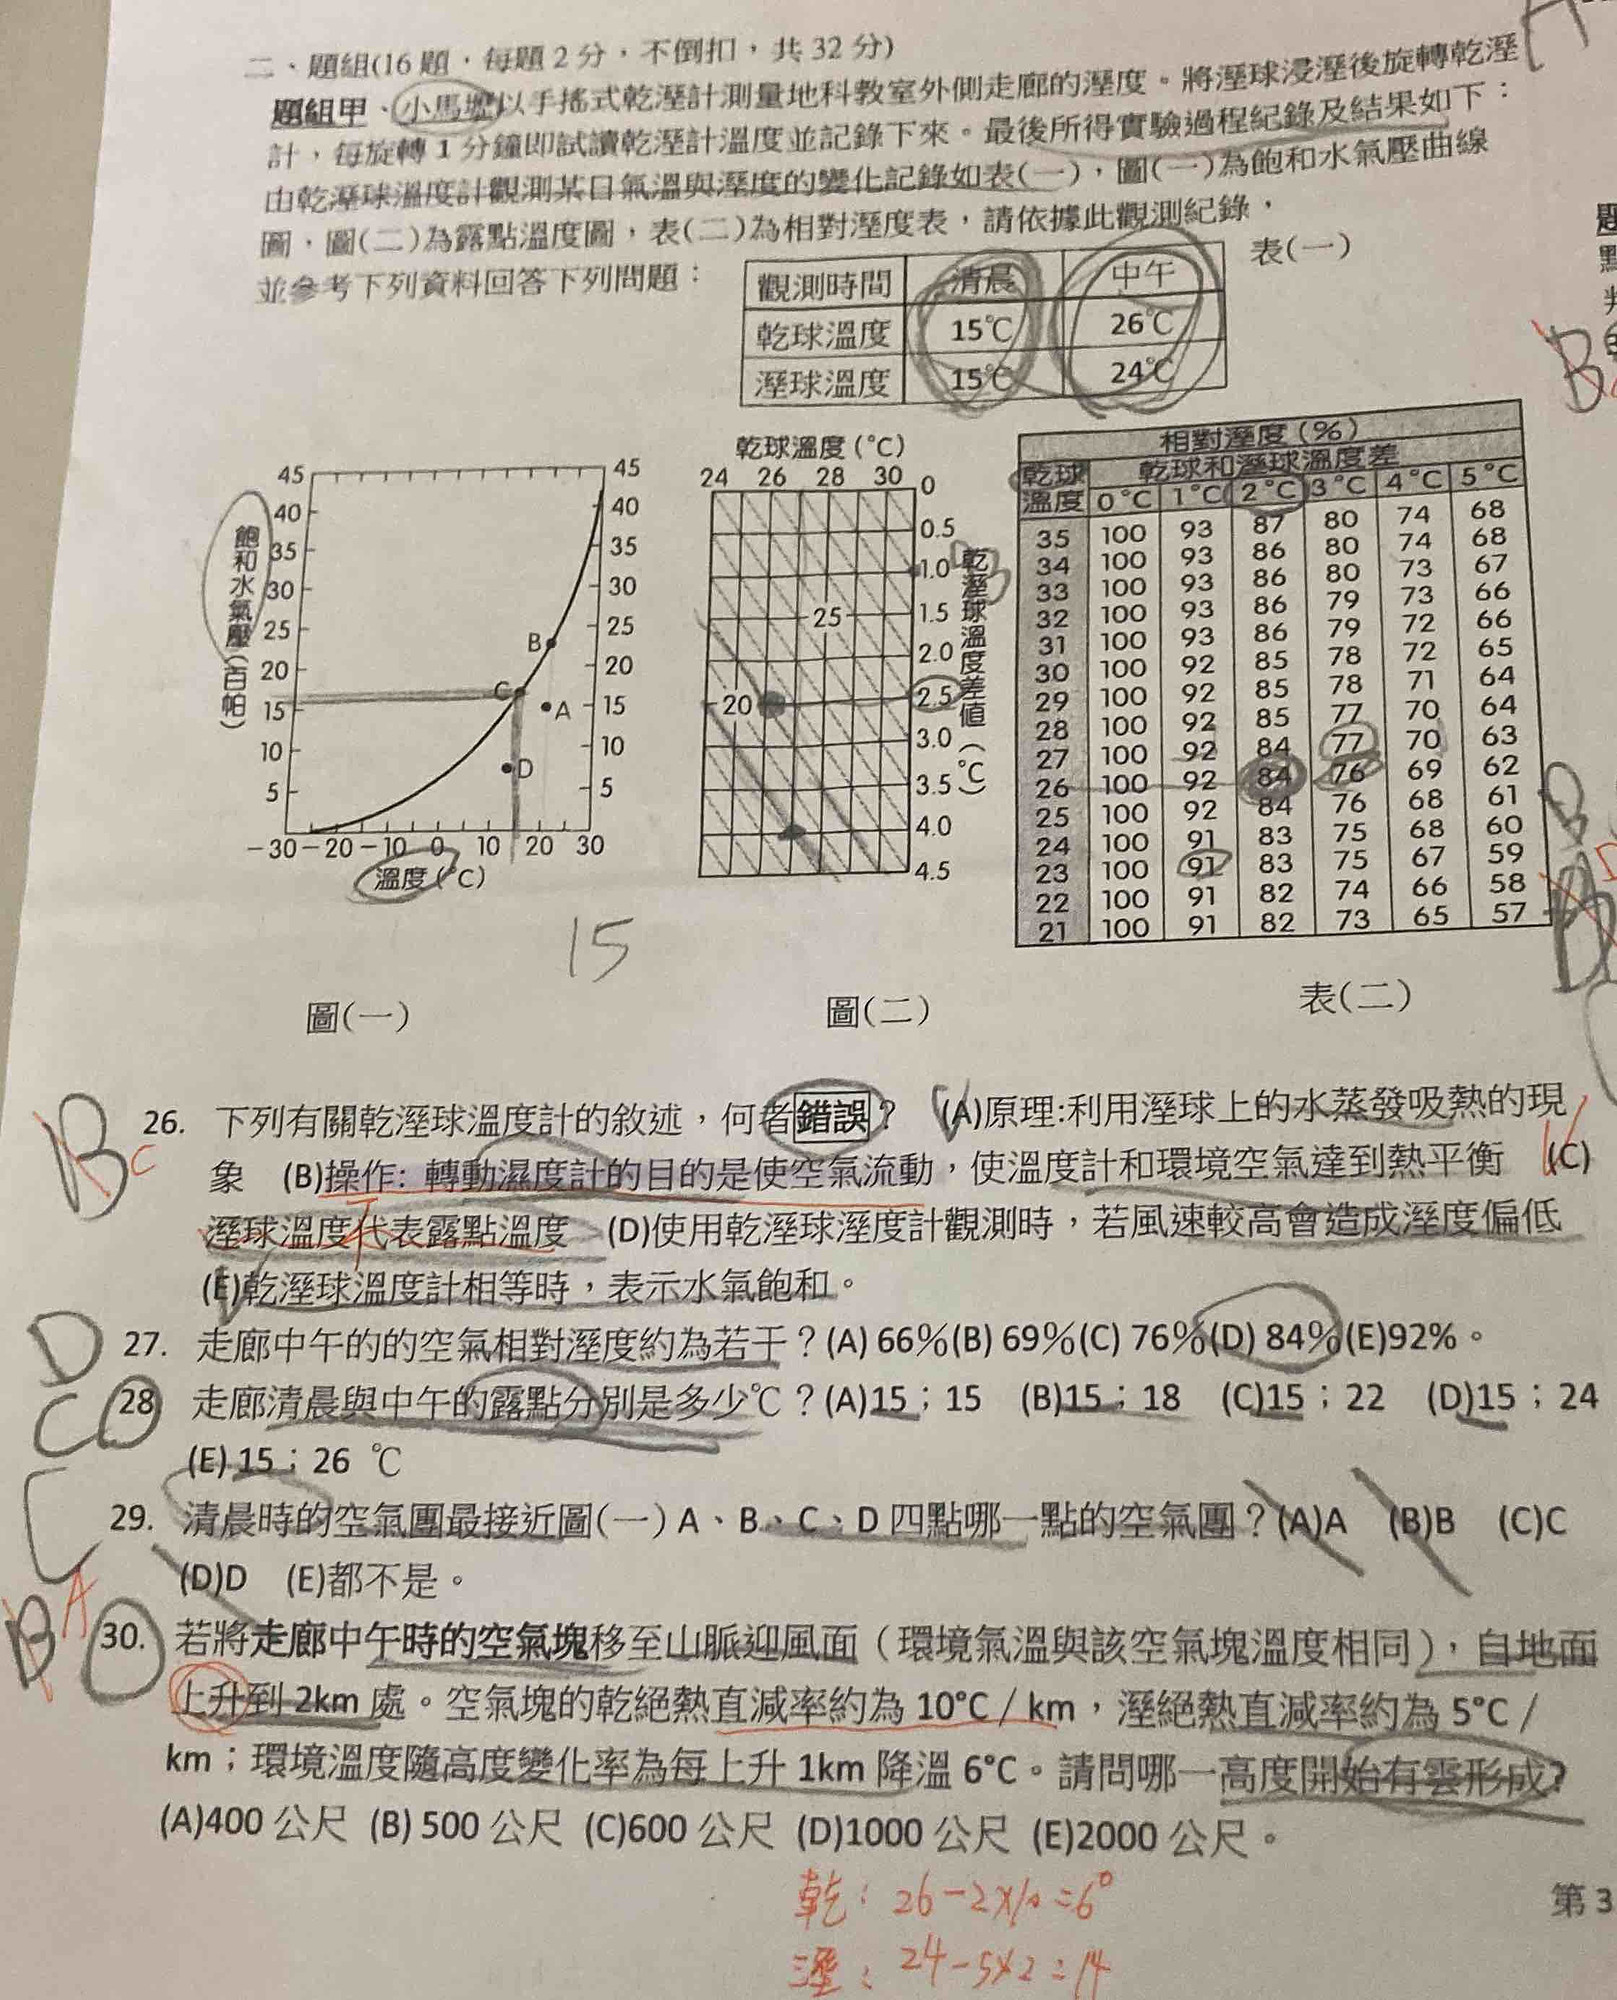 二、題組(16 題，每題 2 分，不倒扣，共 32 分)
題組甲、小馬壢以手搖式乾溼計測量地科教室外側走廊的溼度。將溼球浸溼後旋轉乾溼
計，每旋轉 1 分鐘即試讀乾溼計溫度並記錄下來。最後所得實驗過程紀錄及結果如下：
由乾溼球溫度計觀測某日氣溫與溼度的變化記錄如表(一)，圖(一)為飽和水氣壓曲線
圖，圖(二)為露點溫度圖，表(二)為相對溼度表，請依據此觀測紀錄，
並參考下列資料回答下列問題：
表(一)
觀測時間 清晨 中午
乾球溫度 15℃ 26℃
溼球溫度 15℃ 24℃
飽和水氣壓(百帕)
45 40 35 30 25 20 15 10 5
45 40 35 30 25 20 15 10 5
B
C
A
D
－30－20－10 0 10 20 30
溫度(℃)
乾球溫度(℃)
24 26 28 30
0
0.5
1.0
1.5
2.0
2.5
3.0
3.5
4.0
4.5
25
20
乾溼球溫度差值(℃)
相對溼度(%)
乾球溫度 乾球和溼球溫度差
0℃ 1℃ 2℃ 3℃ 4℃ 5℃
35 100 93 87 80 74 68
34 100 93 86 80 74 68
33 100 93 86 80 73 67
32 100 93 86 79 73 66
31 100 93 86 79 72 66
30 100 92 85 78 72 65
29 100 92 85 78 71 64
28 100 92 85 77 70 64
27 100 92 84 77 70 63
26 100 92 84 76 69 62
25 100 92 84 76 68 61
24 100 91 83 75 68 60
23 100 91 83 75 67 59
22 100 91 82 74 66 58
21 100 91 82 73 65 57
15
圖(一)
圖(二)
表(二)
B C
26. 下列有關乾溼球溫度計的敘述，何者錯誤？ (A)原理:利用溼球上的水蒸發吸熱的現
象 (B)操作: 轉動濕度計的目的是使空氣流動，使溫度計和環境空氣達到熱平衡 (C)
溼球溫度代表露點溫度 (D)使用乾溼球溼度計觀測時，若風速較高會造成溼度偏低
不
(E)乾溼球溫度計相等時，表示水氣飽和。
D
27. 走廊中午的的空氣相對溼度約為若干？(A) 66%(B) 69%(C) 76%(D) 84%(E)92%。
C
28 走廊清晨與中午的露點分別是多少℃？(A)15；15 (B)15；18 (C)15；22 (D)15；24
(E) 15；26 ℃
C
29. 清晨時的空氣團最接近圖(一) A、B、C、D 四點哪一點的空氣團？(A)A (B)B (C)C
(D)D (E)都不是。
B A
30. 若將走廊中午時的空氣塊移至山脈迎風面（環境氣溫與該空氣塊溫度相同），自地面
上升到 2km 處。空氣塊的乾絕熱直減率約為 10°C / km，溼絕熱直減率約為 5°C /
km；環境溫度隨高度變化率為每上升 1km 降溫 6°C。請問哪一高度開始有雲形成?
(A)400 公尺 (B) 500 公尺 (C)600 公尺 (D)1000 公尺 (E)2000 公尺。
乾：26－2×10＝6°
溼：24－5×2＝14
第 3